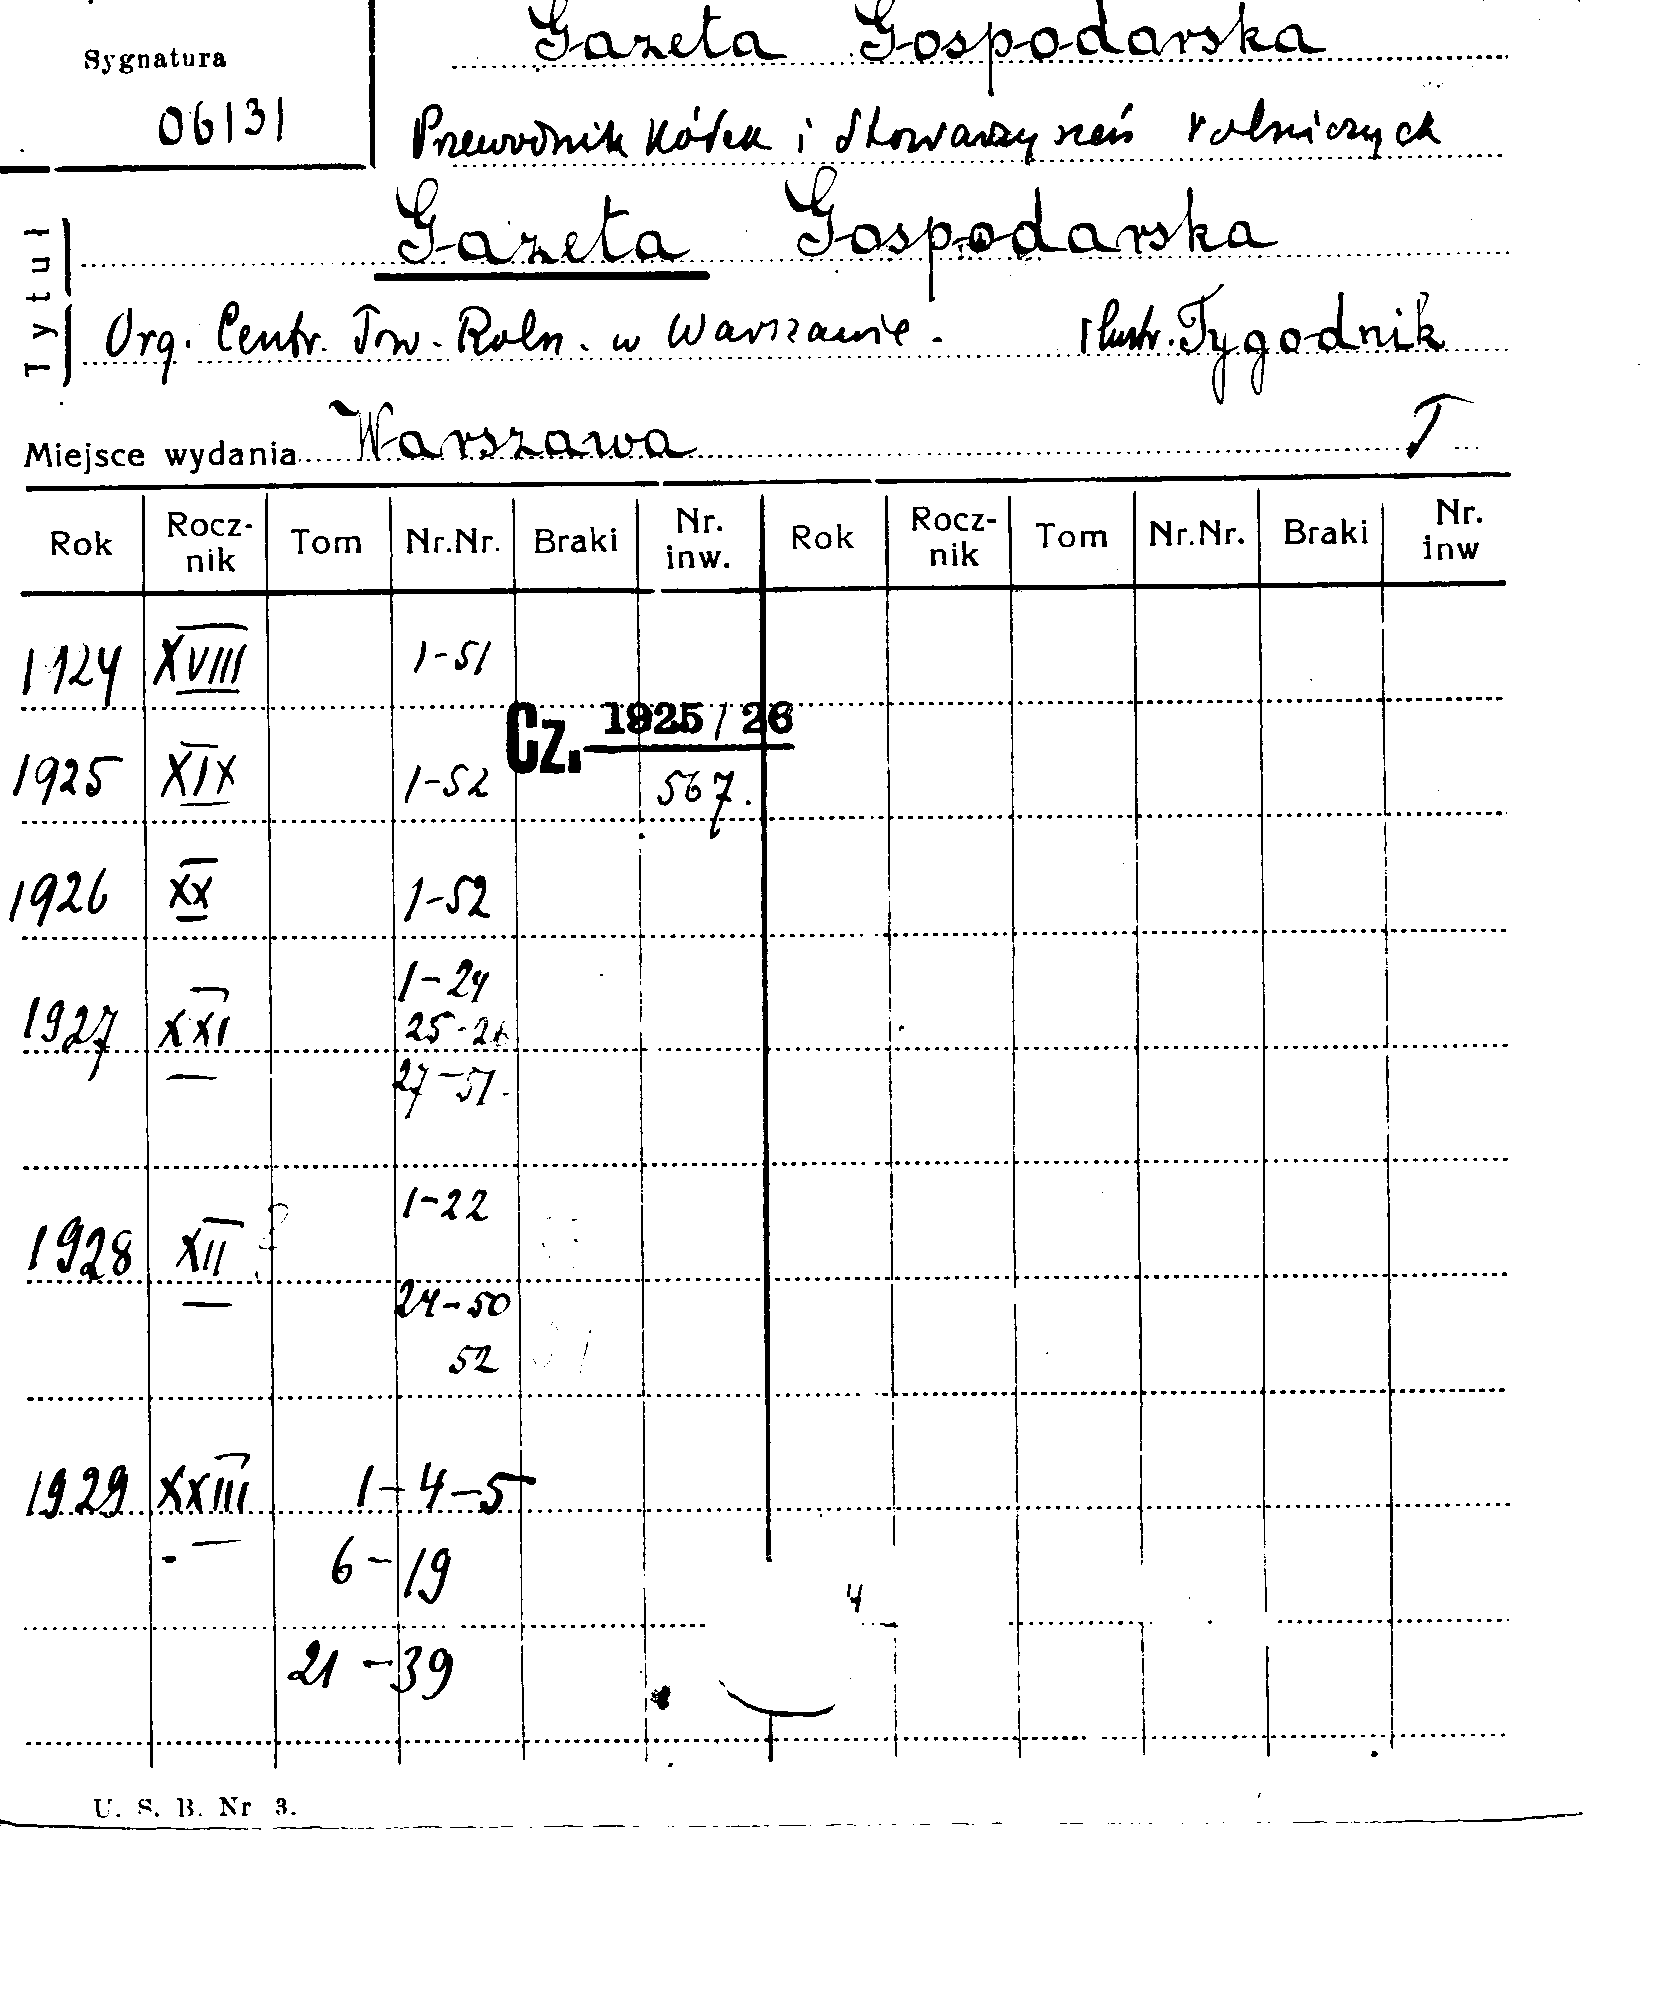 Gazeta Gospodarska
Sygnatura
06131
Przewodnik Kółek i Stowarzyszeń rolniczych
Gazeta Gospodarska
Tytuł
Org. Centr. Tow. Roln. w Warszawie. Ilustr. Tygodnik
Miejsce wydania Warszawa T
Rok Rocz-nik Tom Nr.Nr. Braki Nr. inw. Rok Rocz-nik Tom Nr.Nr. Braki Nr. inw
1924 XVIII 1-51
Cz. 1925/26
1925 XIX 1-52 567.
1926 XX 1-52
1-24
1927 XXI 25-26
27-51.
1-22
1928 XII
24-50
52
1929 XXIII 1-4-5
6-19
4
21-39
U. S. B. Nr 3.